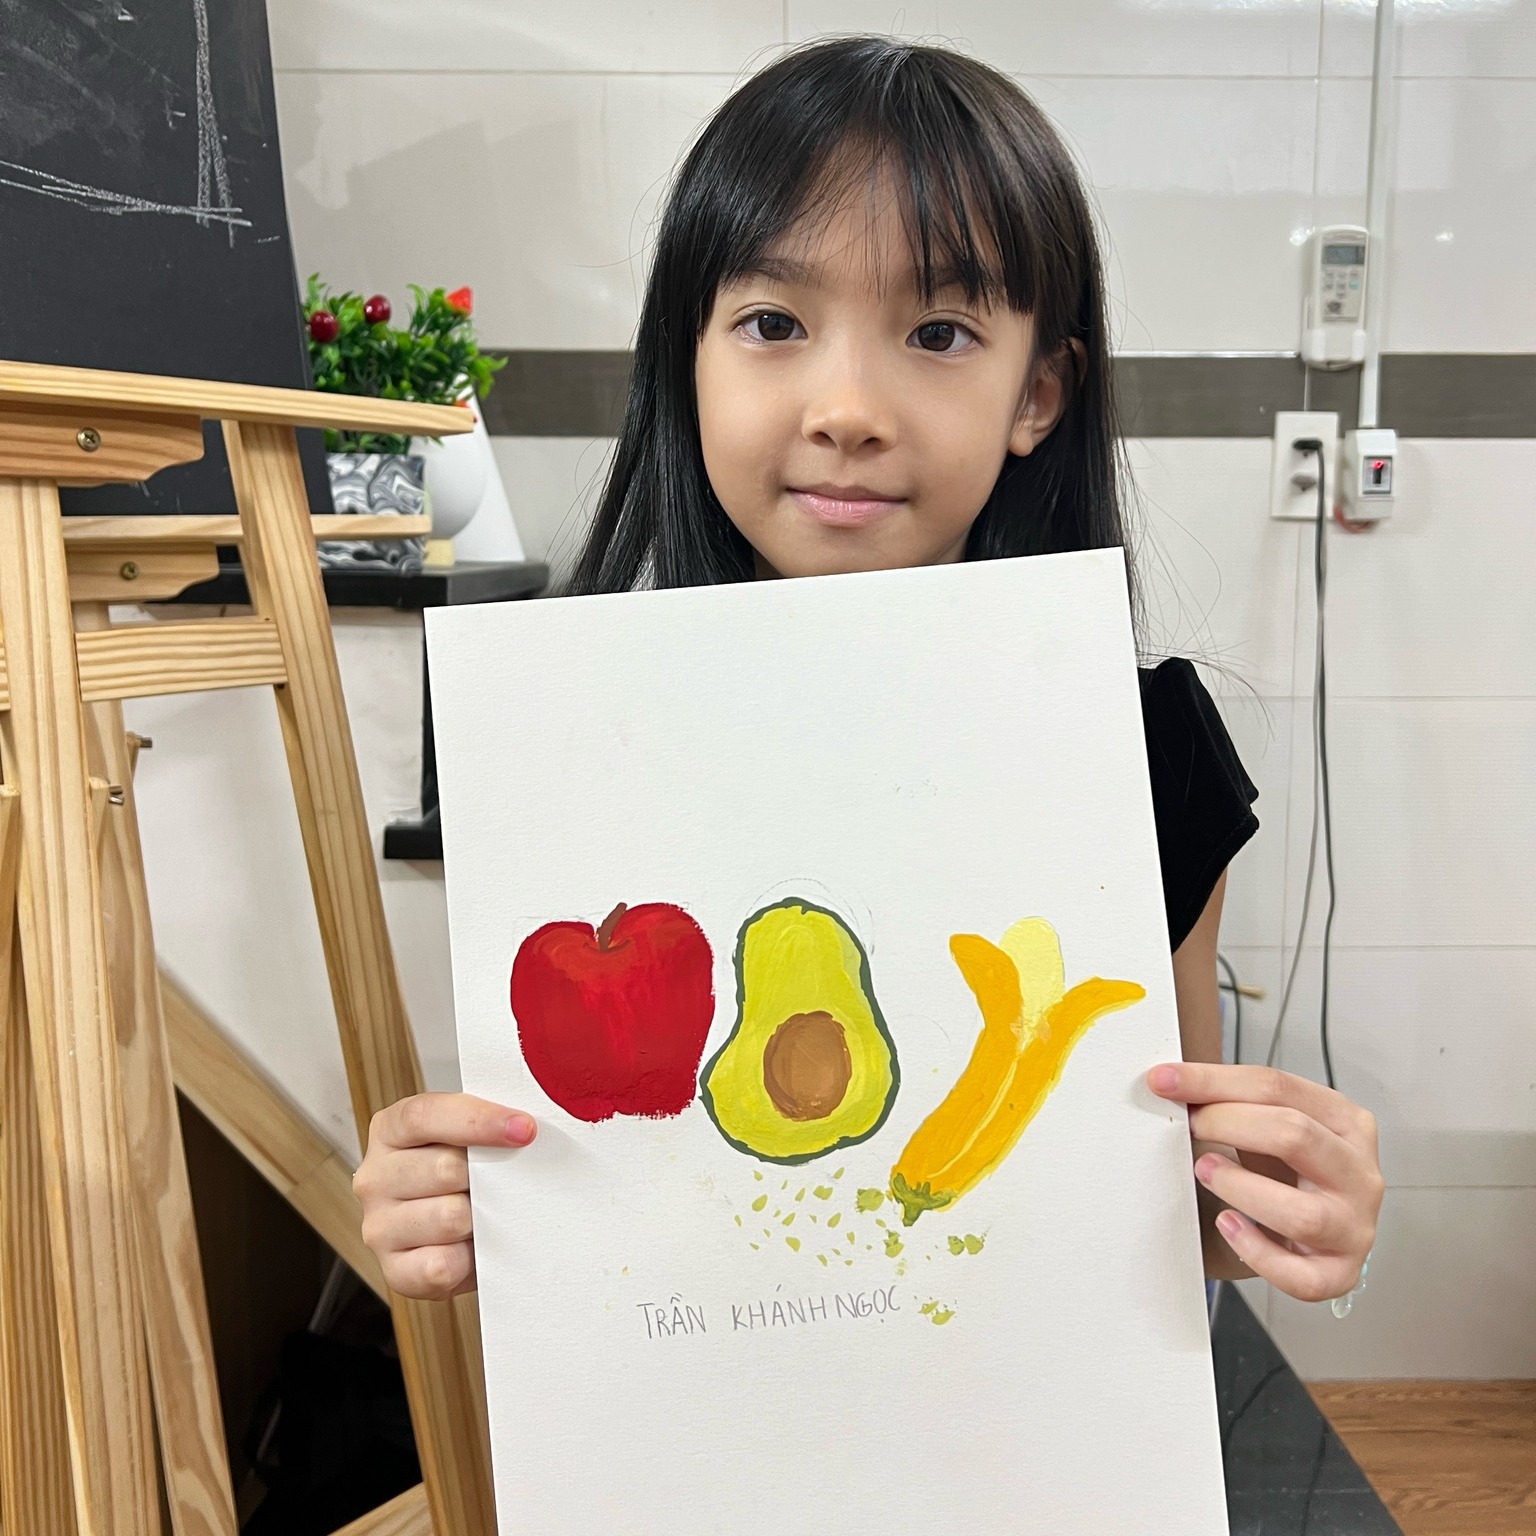 TRẦN KHÁNH NGỌC